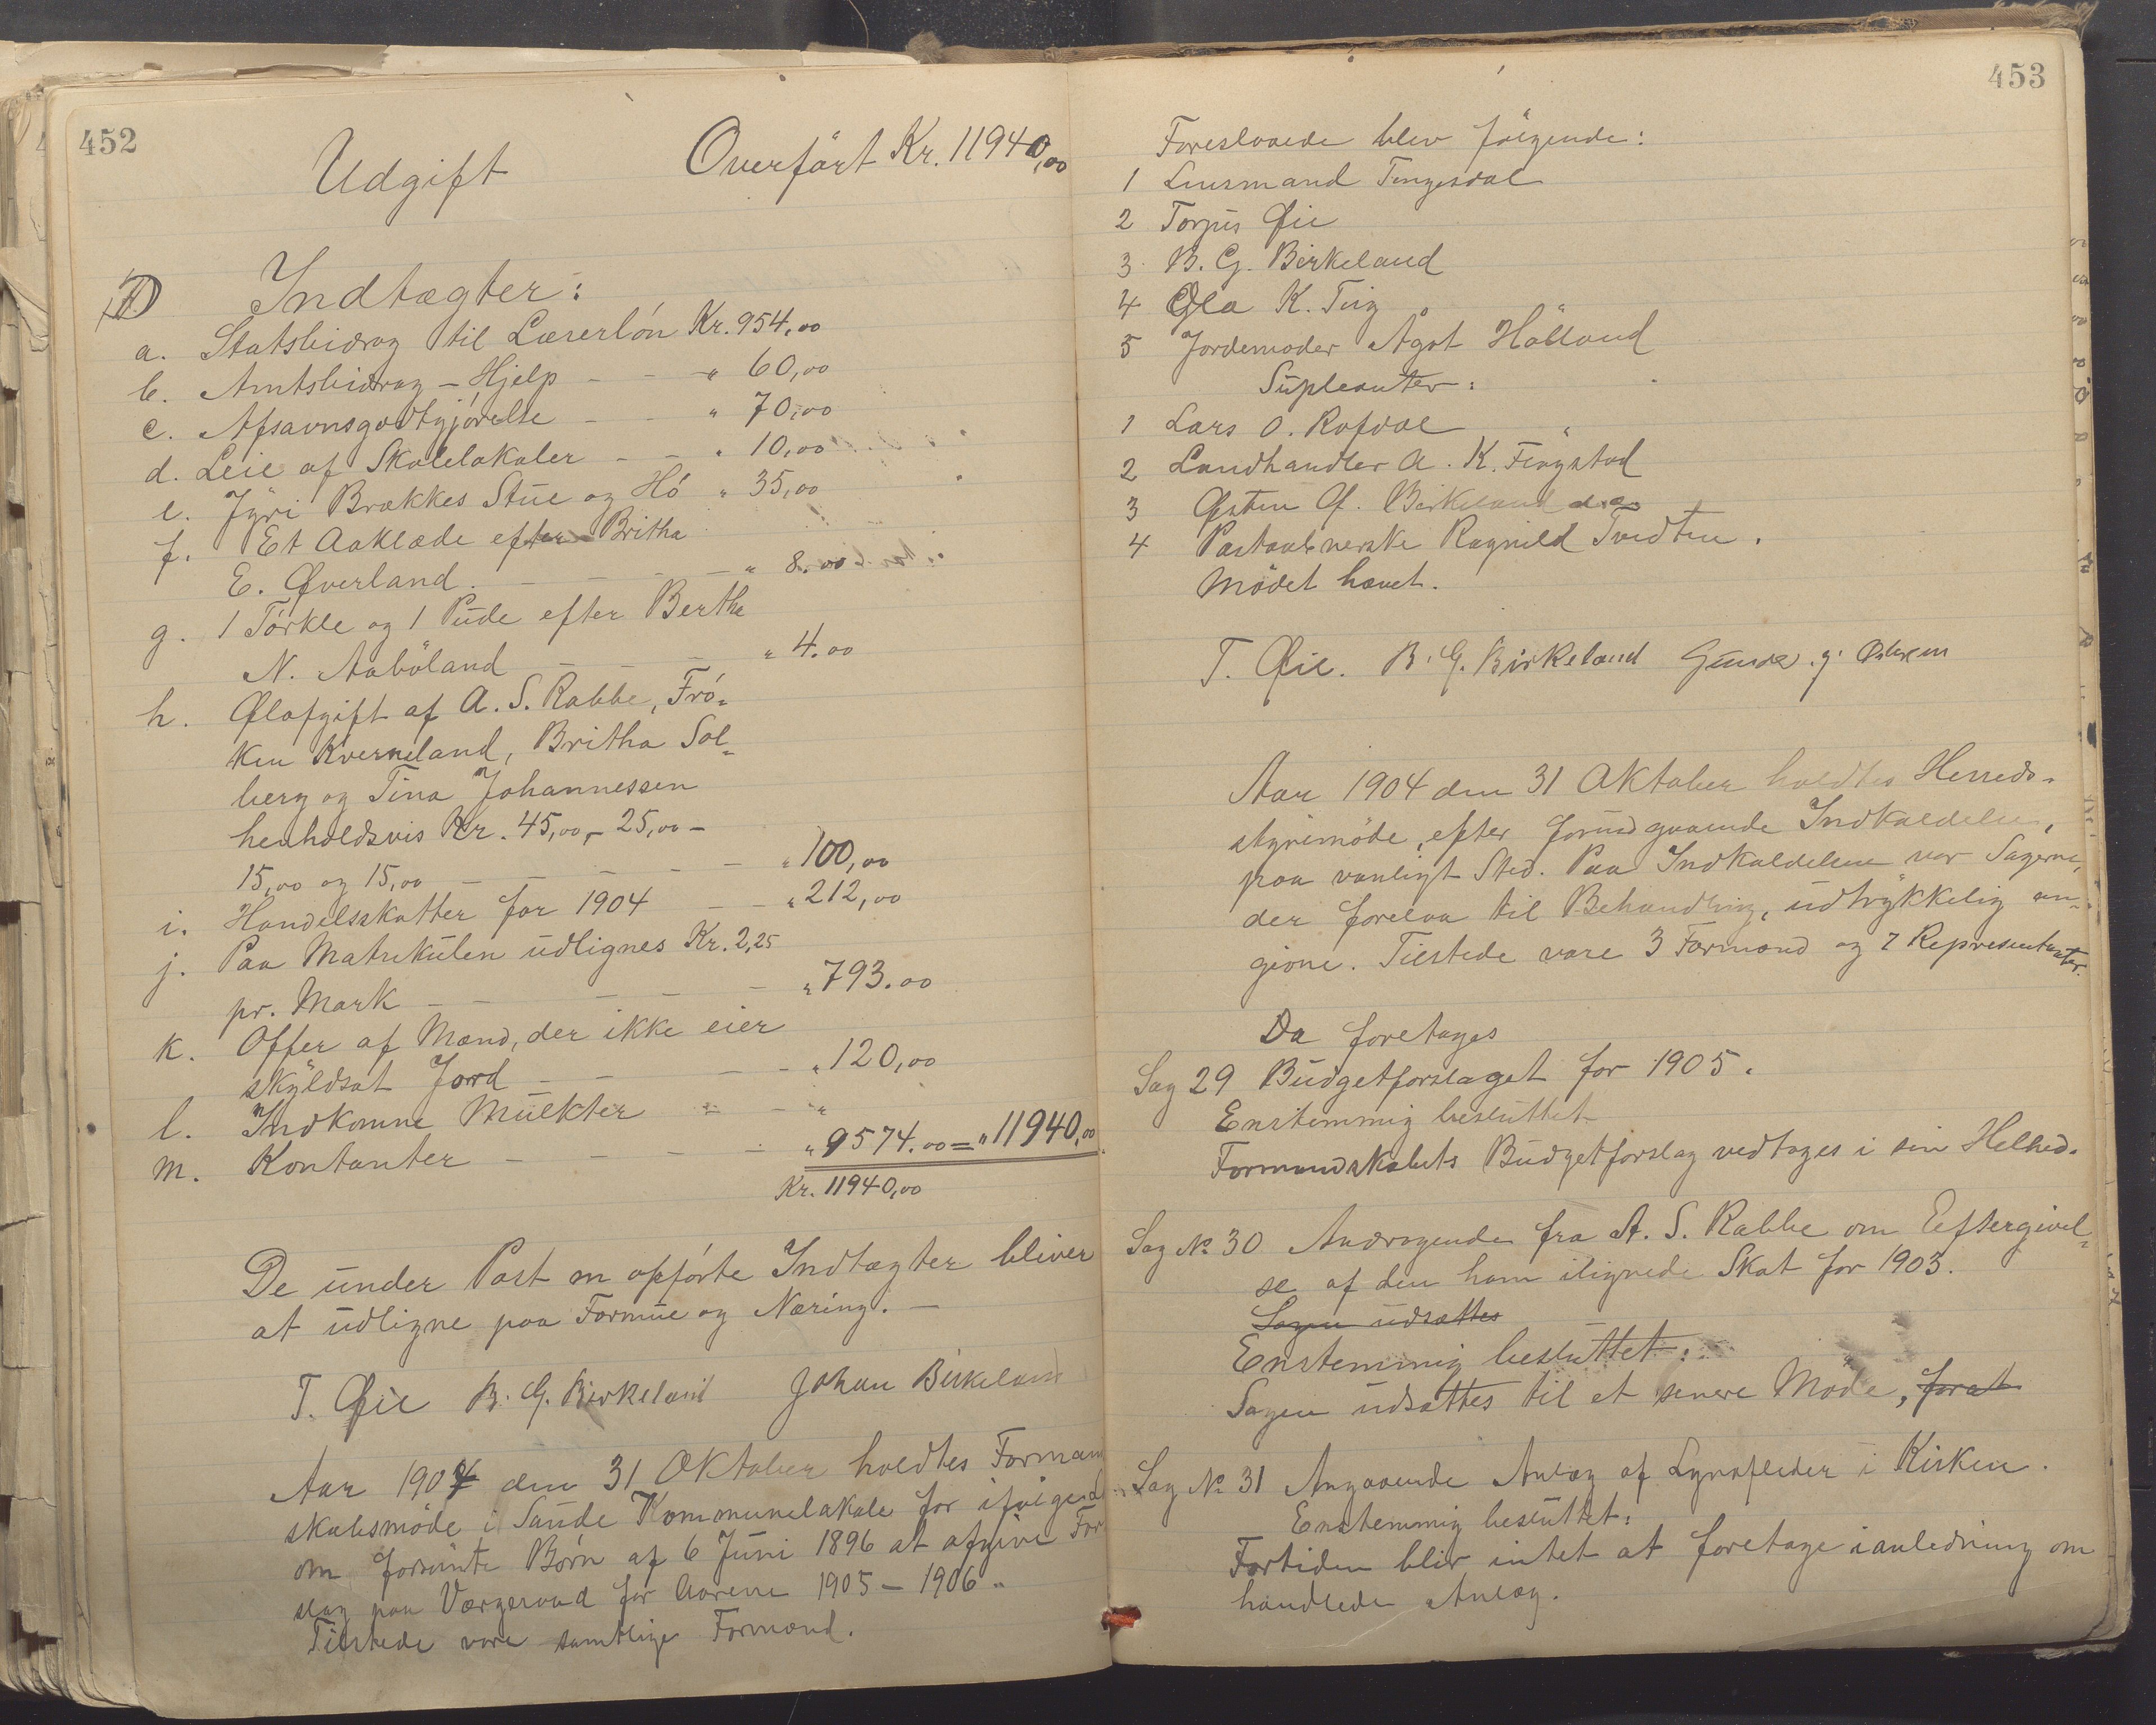 452
Udgift Overført Kr. 11940,00
D Indtægter:
a. Statsbidrag til Lærerløn Kr. 954,00
b. Amtsbidrag - Hjelp - - " 60,00
c. Afsavnsgodtgjørelse - - " 70,00
d. Leie af Skolelokaler - - " 10,00
e. Jyri Brækkes Stue og Hø " 35,00
f. Et Aaklæde efter Britha
E. Øverland - - - - " 8.00
g. 1 Tørkle og 1 Pude efter Bertha
N. Aabøland - - - " 4.00
h. Ølafgift af A. S. Rabbe, Frø-
ken Kverneland, Britha Sol-
berg og Tina Johannessen
henholdsvis Kr. 45,00 - 25,00 -
15,00 og 15,00 - - - - - " 100,00
i. Handelsskatter for 1904 - - " 212,00
j. Paa Matrikulen udlignes Kr. 2,25
pr. Mark - - - - - " 793.00
k. Offer af Mænd, der ikke eier
skyldsat Jord - - - - " 120,00
l. Indkomne Mulkter " - "
m. Kontanter - - - - " 9574.00 = " 11940,00
Kr. 11940,00
De under Post m opførte Indtægter bliver
at udligne paa Formue og Næring. -
T. Øie B. G. Birkeland Johan Birkeland
Aar 1904 den 31 Oktober holdtes Formand
skabsmøde i Saude Kommunelokale for ifølge
om forsømte Børn af 6 Juni 1896 at afgive For
slag paa Værgeraad for Aarene 1905 - 1906.
Tilstede vare samtlige Formænd.
453
Foreslaaede blev følgende:
1 Lensmand Tengesdal
2 Torjus Øie
3 B. G. Birkeland
4 Ola K.
5 Jordemoder Ågot Hålland
Supleanter:
1 Lars O. Rafdal
2 Landhandler A. K. Fingstad
3 Østen Birkeland
4 Postaabnerske Ragnild Tvedten.
Mødet hævet.
T. Øie. B. G. Birkeland Gunder
Aar 1904 den 31 Oktober holdtes Herreds-
styrimøde, efter forudgaaende Indkaldelse,
paa vanligt Sted. Paa Indkaldelsen var Sagerne,
der forelaa til Behandling, udtrykkelig an-
givne. Tilstede vare 3 Formænd og 7 Repræsentanter.
Da foretages
Sag 29 Budgetforslaget for 1905.
Enstemmig besluttet
Formandskabets Budgetforslag vedtages i sin Helhed.
Sag No 30 Andragende fra A. S. Rabbe om Eftergivel-
se af den ham ilignede Skat for 1903.
Sagen udsættes
Enstemmig besluttet:
Sagen udsættes til et senere Møde, forat
Sag No 31 Angaaende Anlæg af Lynafleder i Kirken.
Enstemmig besluttet:
Fortiden blir intet at foretage ianledning om
handlede Anlæg.